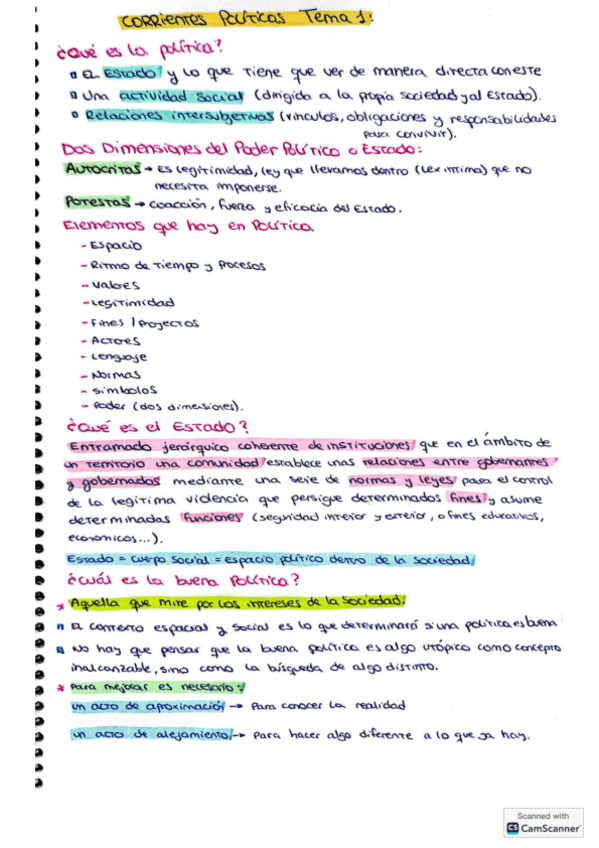 CORRIENTES POLÍTICAS TEMA 1:
¿Qué es la política?
El Estado y lo que tiene que ver de manera directa con este
Una actividad social (dirigida a la propia sociedad y al Estado).
Relaciones intersubjetivas (vínculos, obligaciones y responsabilidades
para convivir).
Dos Dimensiones del Poder Político o Estado:
AUTOCRITAS → Es legitimidad, ley que llevamos dentro (Lex intima) que no
necesita imponerse.
POTESTAS → coacción, fuerza y eficacia del Estado.
Elementos que hay en Política
- Espacio
- Ritmo de Tiempo y Procesos
- Valores
- Legitimidad
- Fines / Proyectos
- Actores
- Lenguaje
- Normas
- Símbolos
- Poder (dos dimensiones).
¿Qué es el Estado?
Entramado jerárquico coherente de instituciones que en el ámbito de
un territorio una comunidad establece unas relaciones entre gobernantes
y gobernados mediante una serie de normas y leyes para el control
de la legítima violencia que persigue determinados fines y asume
determinadas funciones (seguridad interior y exterior, o fines educativos,
económicos...).
Estado = cuerpo social = espacio político dentro de la sociedad
¿Cuál es la buena Política?
* Aquella que mire por los intereses de la sociedad.
El contexto espacial y social es lo que determinará si una política es buena
No hay que pensar que la buena política es algo utópico como concepto
inalcanzable, sino como la búsqueda de algo distinto.
* Para mejorar es necesario:
un acto de aproximación → Para conocer la realidad
un acto de alejamiento → Para hacer algo diferente a lo que ya hay.
Scanned with
CS CamScanner